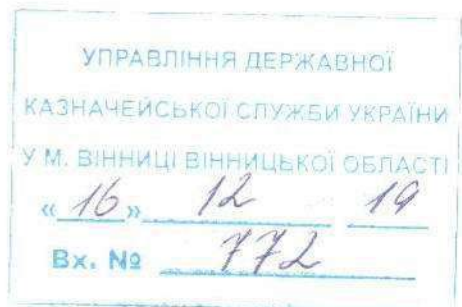 УПРАВЛІННЯ ДЕРЖАВНОЇ
КАЗНАЧЕЙСЬКОЇ СЛУЖБИ УКРАЇНИ
У М. ВІННИЦІ ВІННИЦЬКОЇ ОБЛАСТІ
«16» 12 19
Вх. № 772